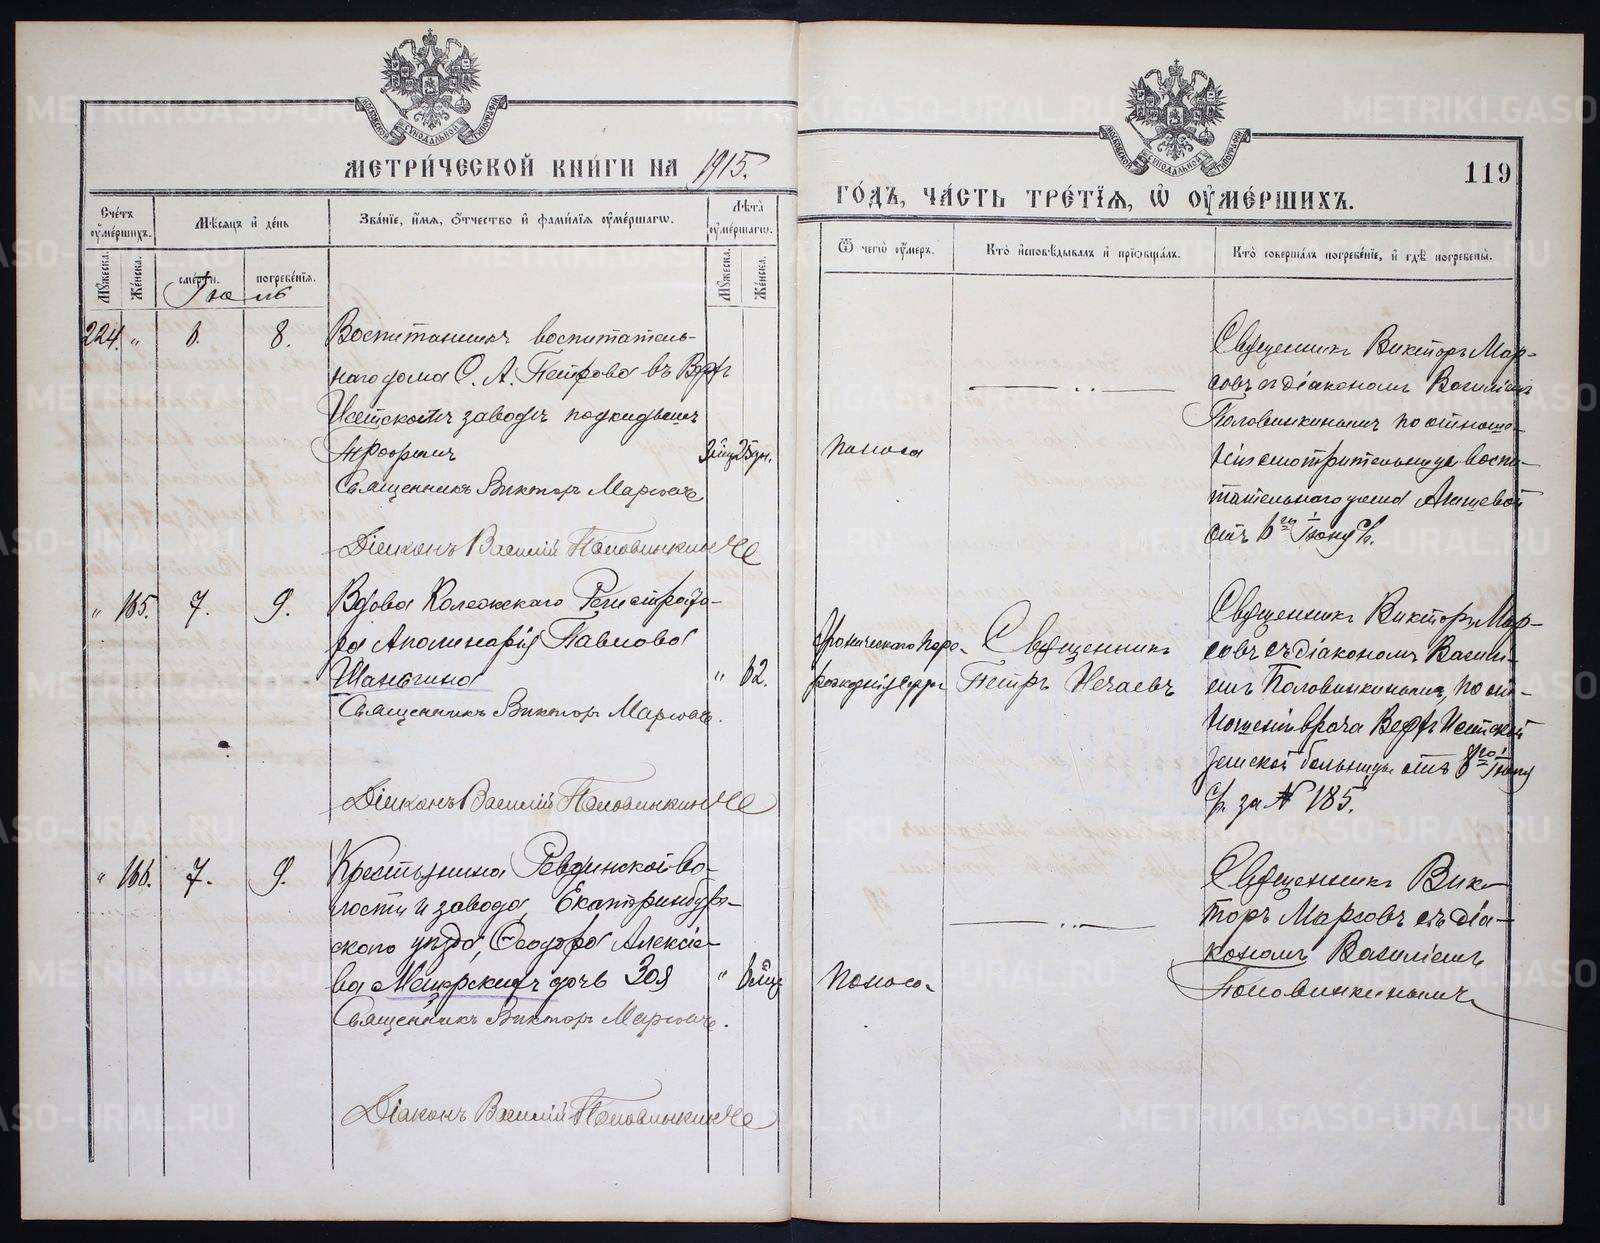 МЕТРИ́ЧЕСКОЙ КНИ́ГИ НА 1915.
ГО́ДЪ, ЧА́СТЬ ТРЕ́ТІѦ, Ѡ҆ ОУ҆МЕ́РШИХЪ.
119
Сче́тъ оу҆ме́ршихъ.
Мѣ́сяцъ и҆ де́нь
Зва́нїе, и҆́мѧ, ѻ҆́тчество и҆ фами́лїѧ оу҆ме́ршагѡ.
Лѣ́та оу҆ме́ршагѡ.
Ѿ чегѡ̀ оу҆́меръ.
Кто̀ и҆сповѣ́дывалъ и҆ прїѡбща́лъ.
Кто̀ соверша́лъ погребе́нїе, и҆ гдѣ̀ погребены̀.
Му́жеска.
Же́нска.
сме́рти.
погребе́нїя.
Му́жеска.
Же́нска.
Іюль
224. „ 6. 8.
Воспитанникъ воспитатель-
наго дома С. А. Петрова въ Верхъ
Исетскомъ заводѣ подкидышъ
Трофимъ
Священникъ Викторъ Марсовъ
Діаконъ Василій Половинкинъ
поноса
Священникъ Викторъ Мар-
совъ съ діакономъ Василіемъ
Половинкинымъ по отноше-
нію смотрительницы воспи-
тательнаго дома
отъ 6го Іюля с/г.
„ 165. 7. 9.
Вдова Колежскаго Регистрато-
ра Аполинарія Павлова
Шаньгина
„ 62.
Священникъ Викторъ Марсовъ.
Діаконъ Василій Половинкинъ
хроническаго поро-
Священникъ
Петръ Нечаевъ
Священникъ Викторъ Мар-
совъ съ діакономъ Васили-
емъ Половинкинымъ, по от-
ношенію врача Верхъ Исетской
земской больницы отъ 8го Іюля
с/г. за № 185.
„ 166. 7. 9.
Крестьянина Ревдинской во-
лости и завода, Екатеринбург-
скаго уѣзда, Ѳеодора Алексіе-
ва Мещерскихъ дочь Зоя
„ 6 мѣс
Священникъ Викторъ Марсовъ.
Діаконъ Василій Половинкинъ
поноса.
Священникъ Вик-
торъ Марсовъ съ діа-
кономъ Василіемъ
Половинкинымъ
METRIKI.GASO-URAL.RU